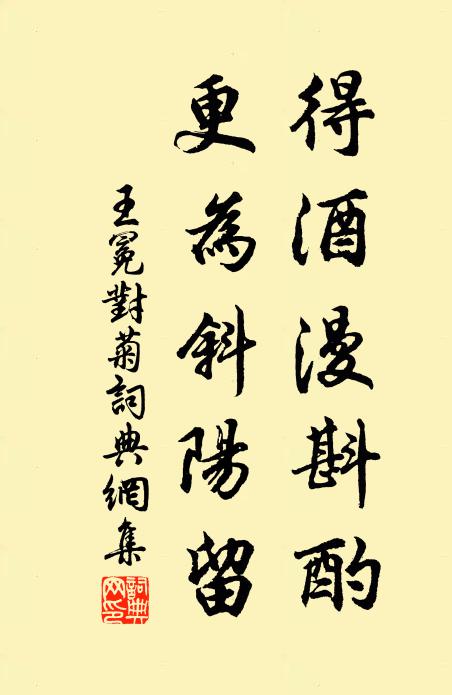 得酒漫斟酌
更為斜陽留
王冕對菊詞典網集
詞典网印